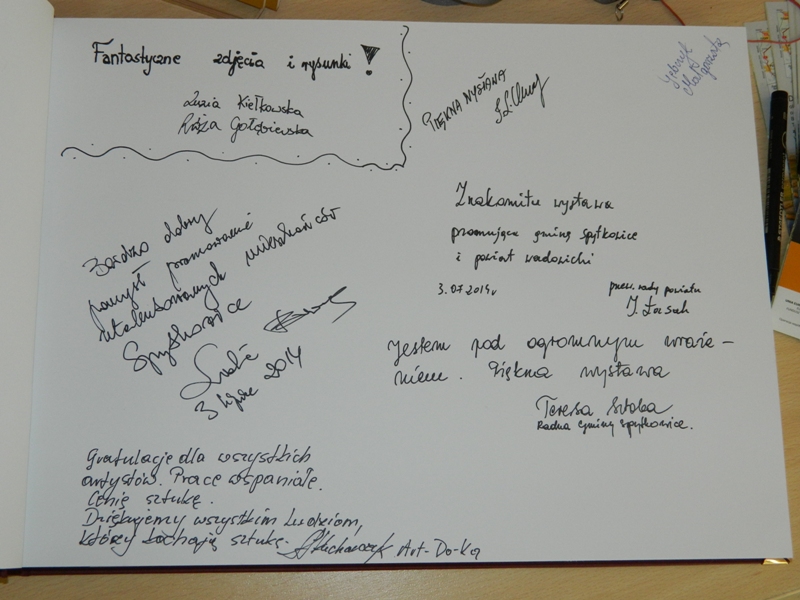 Fantastyczne zdjęcia i rysunki!
Zuzia Kiełkowska
Róża Gołębiewska
PIĘKNA WYSTAWA
Małgorzata
Znakomita wystawa
promująca gminę Spytkowice
i powiat wadowicki
3.07.2014r
przew. rady powiatu
Bardzo dobry
pomysł promowanie
utalentowanych mieszkańców
Spytkowice
3 lipiec 2014
Jestem pod ogromnym wraże-
niem. Piękna wystawa
Teresa
Radna Gminy Spytkowice.
Gratulacje dla wszystkich
artystów. Prace wspaniałe.
Cenię sztukę.
Dziękujemy wszystkim ludziom,
którzy kochają sztukę. Art-Do-Ka